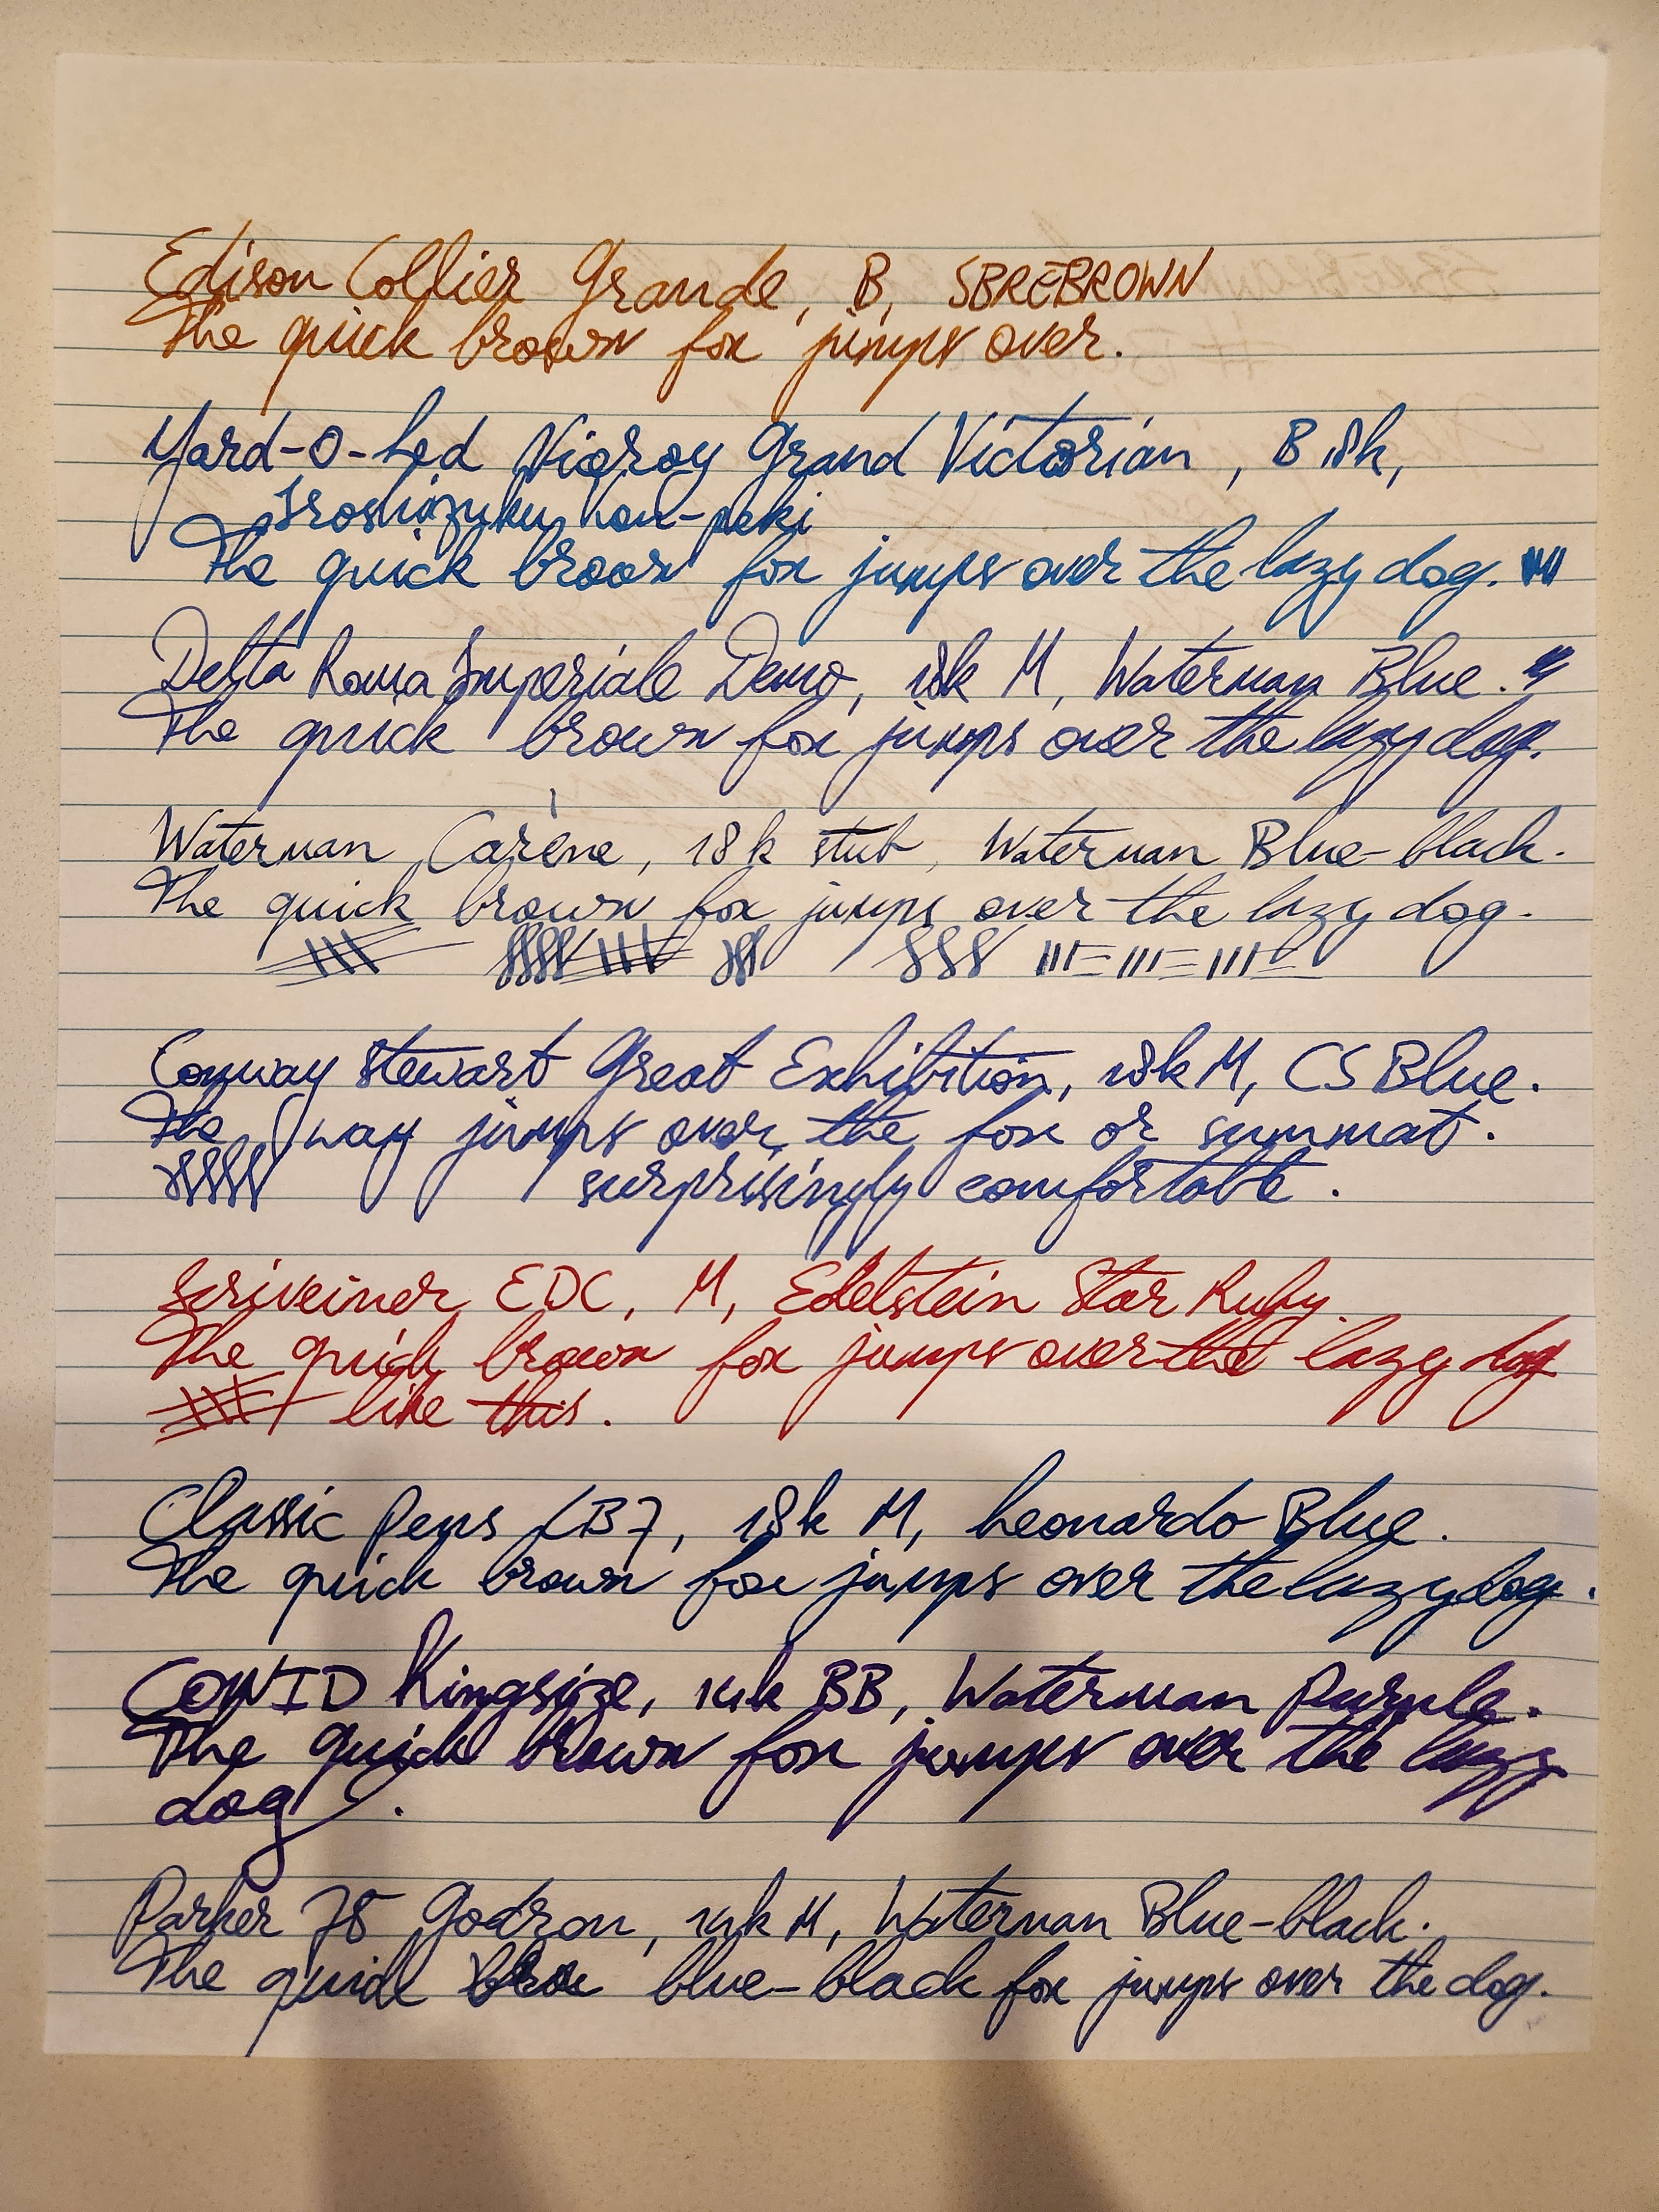 Edison Collier Grande, B, SBREBROWN
The quick brown fox jumps over.
Yard-O-Led Viceroy Grand Victorian, B 18k,
Iroshizuku kon-peki
The quick brown fox jumps over the lazy dog.
Delta Roma Imperiale Demo, 18k M, Waterman Blue.
The quick brown fox jumps over the lazy dog.
Waterman Carène, 18k stub, Waterman Blue-black.
The quick brown fox jumps over the lazy dog.
Conway Stewart Great Exhibition, 18k M, CS Blue.
The way jumps over the fox or summat.
surprisingly comfortable.
Scriveiner EDC, M, Edelstein Star Ruby.
The quick brown fox jumps over the lazy dog
like this.
Classic Pens LB7, 18k M, Leonardo Blue.
The quick brown fox jumps over the lazy dog.
COWID Kingsize, 14k BB, Waterman Purple.
The quick brown fox jumps over the lazy
dog.
Parker 75 Godron, 14k M, Waterman Blue-black.
The quick blue-black fox jumps over the dog.